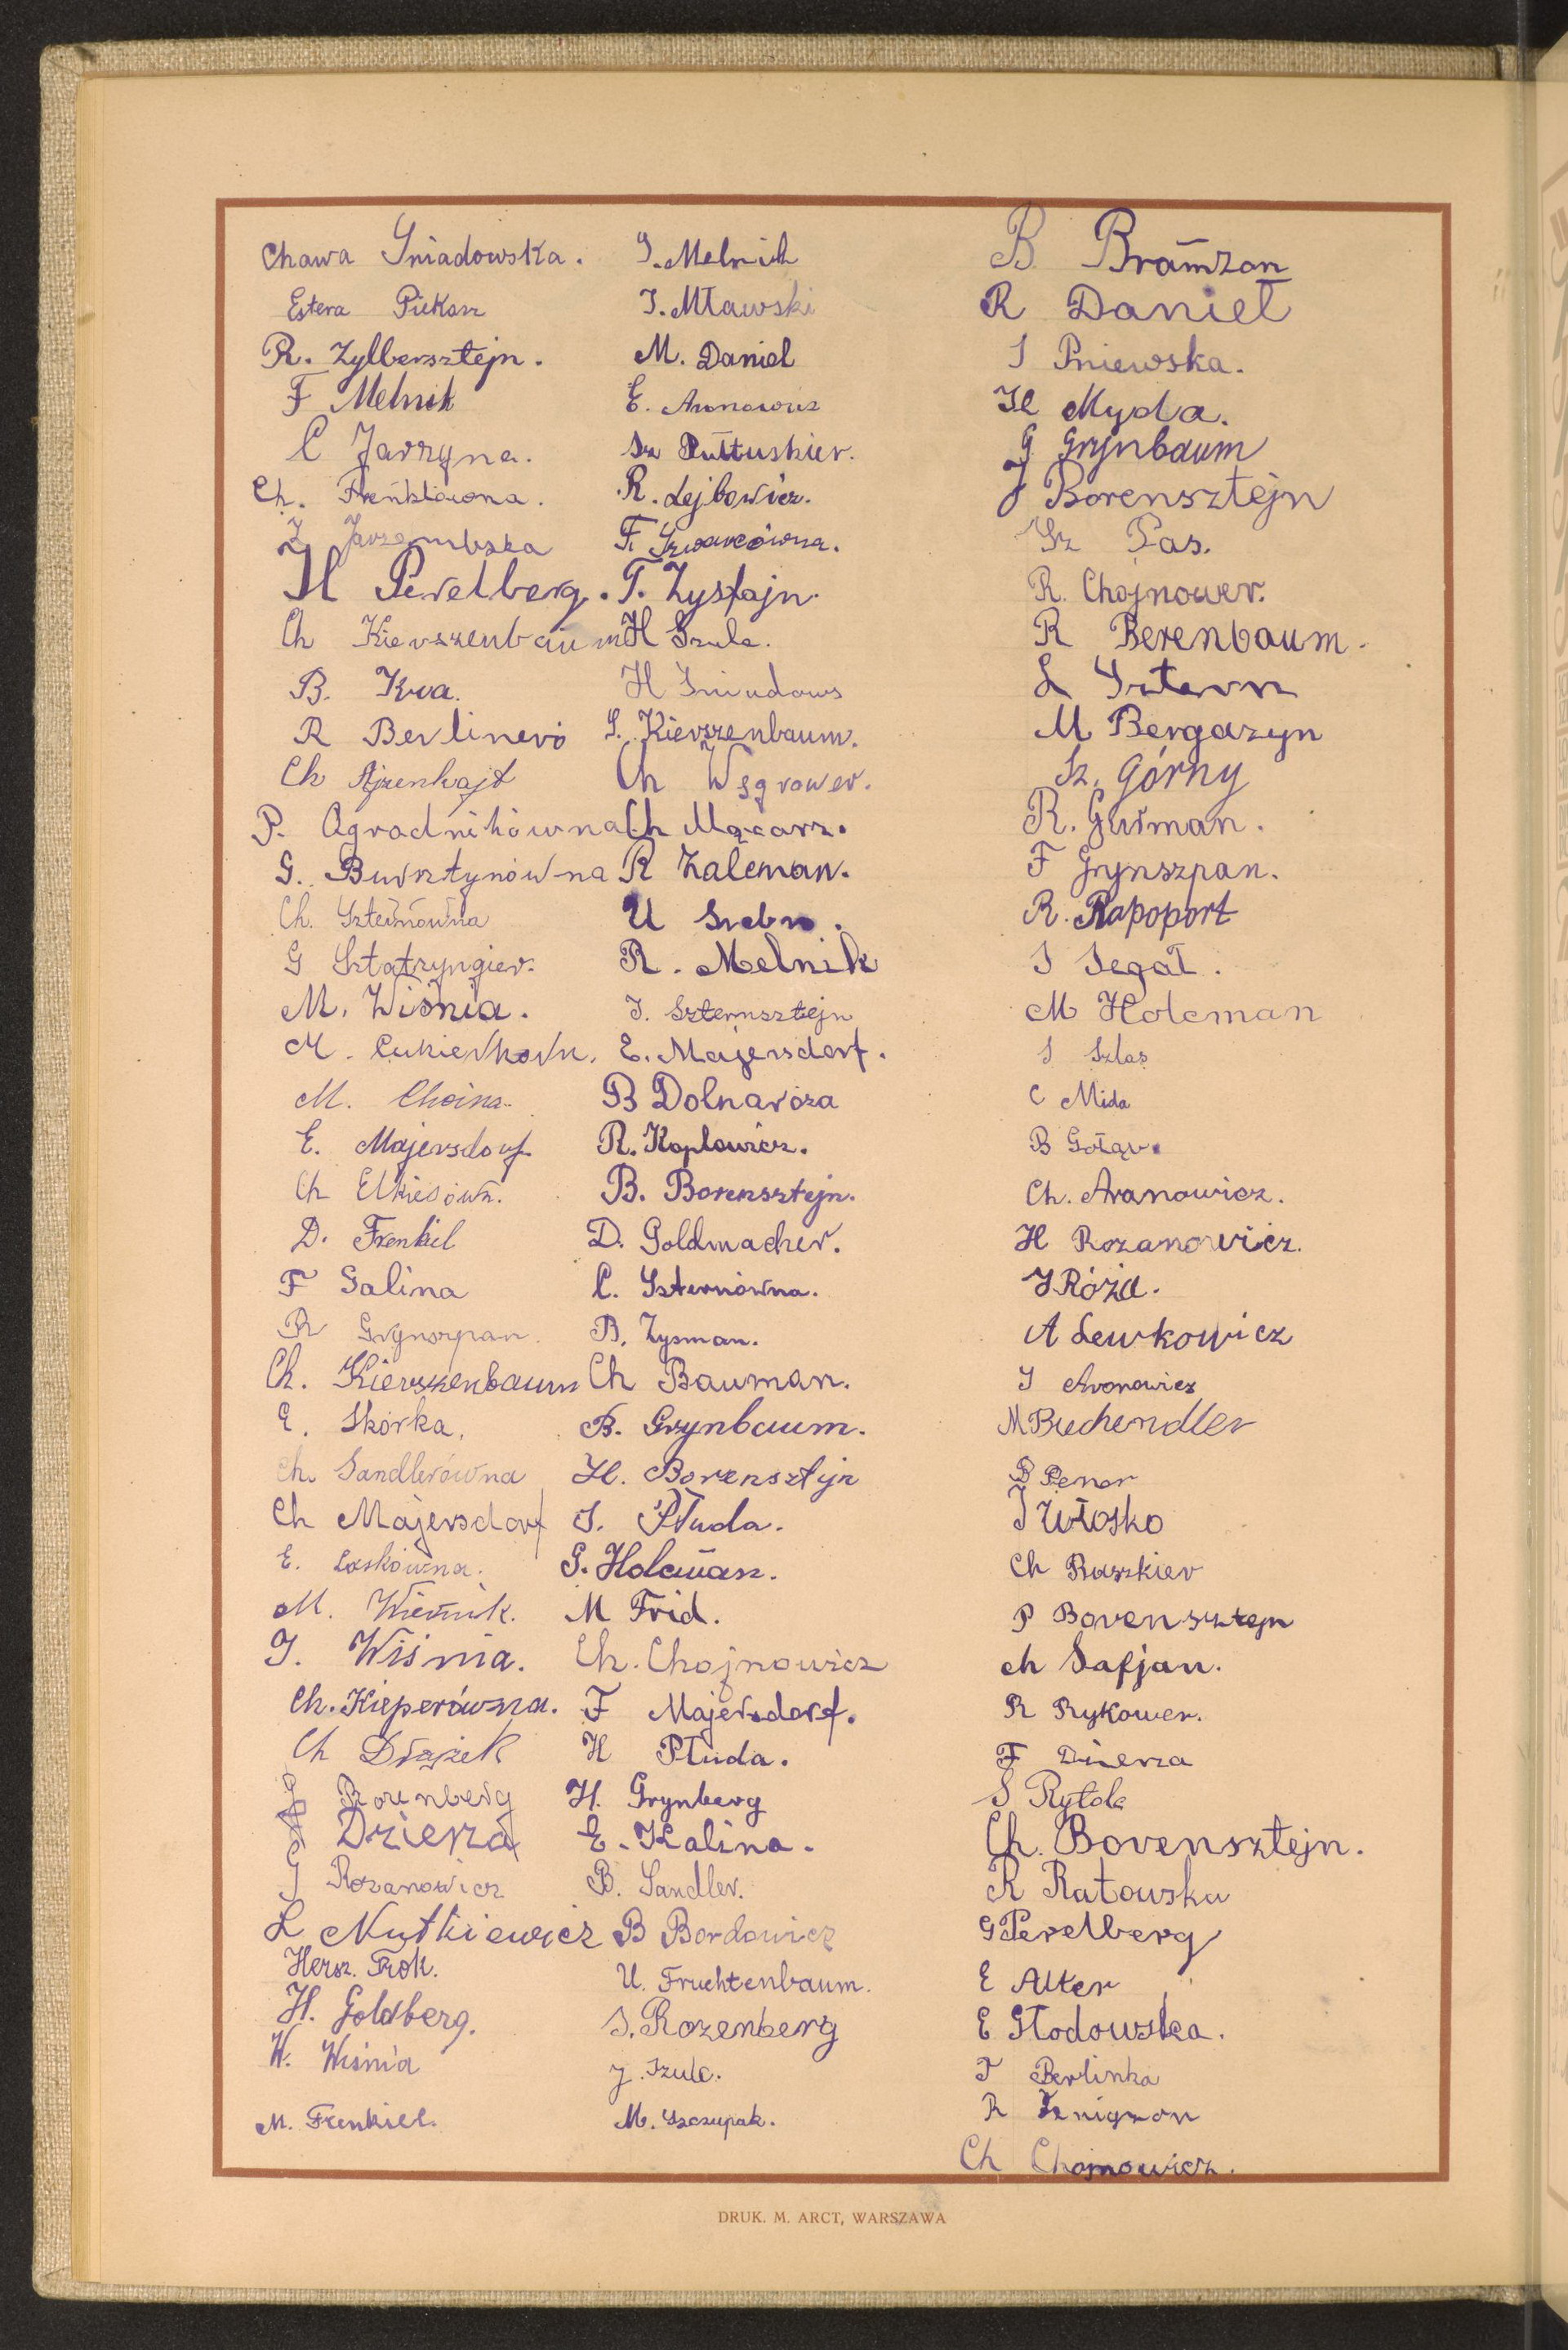 Chawa Śniadowska.
Estera Piekarz
R. Zylbersztejn.
F Melnik
C Jarzyna.
Ch. Frenklówna.
Jarzembska
H Perelberg.
Ch Kierszenbaum
B. Kra.
R Berliner
Ch Ajzenkajt
P. Ogrodnikówna
G. Bursztynówna
Ch. Szternówna
G Sztatzyngier.
M. Wiśnia.
M. Cukierkorn.
M. Choina.
E. Majersdorf
Ch Elkiesówn.
D. Frenkiel
F Galina
R Grynszpan.
Ch. Kierszenbaum
E. Skórka.
Ch. Sandlerówna
Ch Majersdorf
E. Laskówna.
M. Wiernik.
J. Wiśnia.
Ch. Kieperówna.
Ch Drążek
Rozenberg
Dzierza
G Rozanowicz
L Nutkiewicz
Hersz. Frok.
H. Goldberg.
W. Wiśnia
M. Frenkiel.
S. Melnik
I. Mławski
M. Daniel
E. Aronowicz
Sz Pułtuskier.
R. Lejbowicz.
F. Szwarcówna.
T. Zysfajn.
H Szulc.
H Śniadows
S. Kierszenbaum.
Ch Węgrower.
Ch Mącarz.
R Zalcman.
U Srebr.
R. Melnik
I. Szternsztejn
E. Majersdorf.
B Dolnaróza
R. Koplowicz.
B. Borensztejn.
D. Goldmacher.
C. Szternówna.
B. Zysman.
Ch Bauman.
B. Grynbaum.
H. Borensztejn
S. Płuda.
G. Holcman.
M Frid.
Ch. Chojnowicz
F Majersdorf.
H Płuda.
H. Grynberg
E. Kalina.
B. Sandler.
B Bordowicz
U. Fruchtenbaum.
S. Rozenberg
J. Szulc.
M. Szczupak.
B Bramzon
R Danieł
S Pniewska.
H Myda.
G Grynbaum
J Borensztejn
Sz Pas.
R. Chojnower.
R Berenbaum.
L Sztern
M Bergazyn
Sz. Górny
R. Gutman.
F Grynszpan.
R. Rapoport
S Segał.
M Holcman
S Szlas
C Mida
B Gołąb.
Ch. Aranowicz.
H Rozanowicz.
J Róża.
A Lewkowicz
I Aronowicz
M Buchendler
B Penor
J Włosko
Ch Ruszkier
P Borensztejn
Ch Safjan.
R Rykower.
F Dzierza
S Rytola
Ch. Borensztejn.
R Ratowska
G Perelberg
E Alter
E Głodowska.
F Berlinka
R Knigzon
Ch Chojnowicz.
DRUK. M. ARCT, WARSZAWA